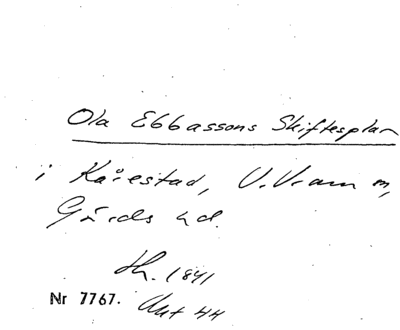 Ola Ebbassons Skiftesplan
i Kårestad, V. Vram m,
Gärds hd.
Sk. 1841
Nr 7767. Aut 44